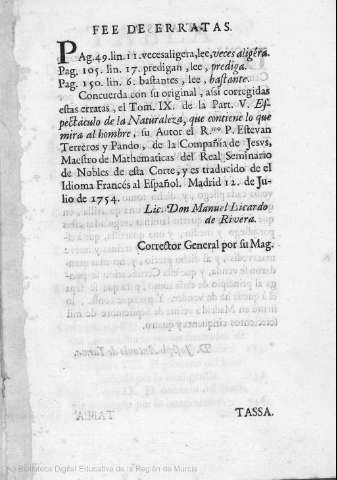 FEE DE ERRATAS.
PAg. 49. lin. 11. vecesaligera, lee, veces aligéra.
Pag. 105. lin. 17. predigan, lee, prediga.
Pag. 150. lin. 6. bastantes, lee, bastante.
Concuerda con su original, assi corregidas
estas erratas, el Tom. IX. de la Part. V. Es-
pectáculo de la Naturaleza, que contiene lo que
mira al hombre, su Autor el R.mo P. Estevan
Terreros y Pando, de la Compañia de Jesvs,
Maestro de Mathematicas del Real Seminario
de Nobles de esta Corte, y es traducido de el
Idioma Francés al Español. Madrid 12. de Ju-
lio de 1754.
Lic. Don Manuel Licardo
de Rivera.
Corrector General por su Mag.
TASSA.
Biblioteca Digital Educativa de la Región de Murcia